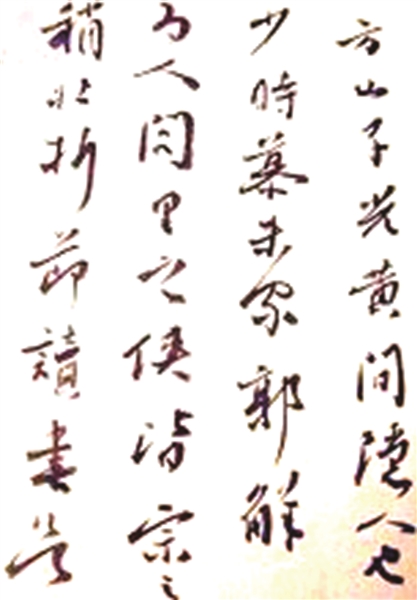 方山子光黄間隱人也
少時慕朱家郭解
為人閭里之俠皆宗之
稍壯折節讀書欲